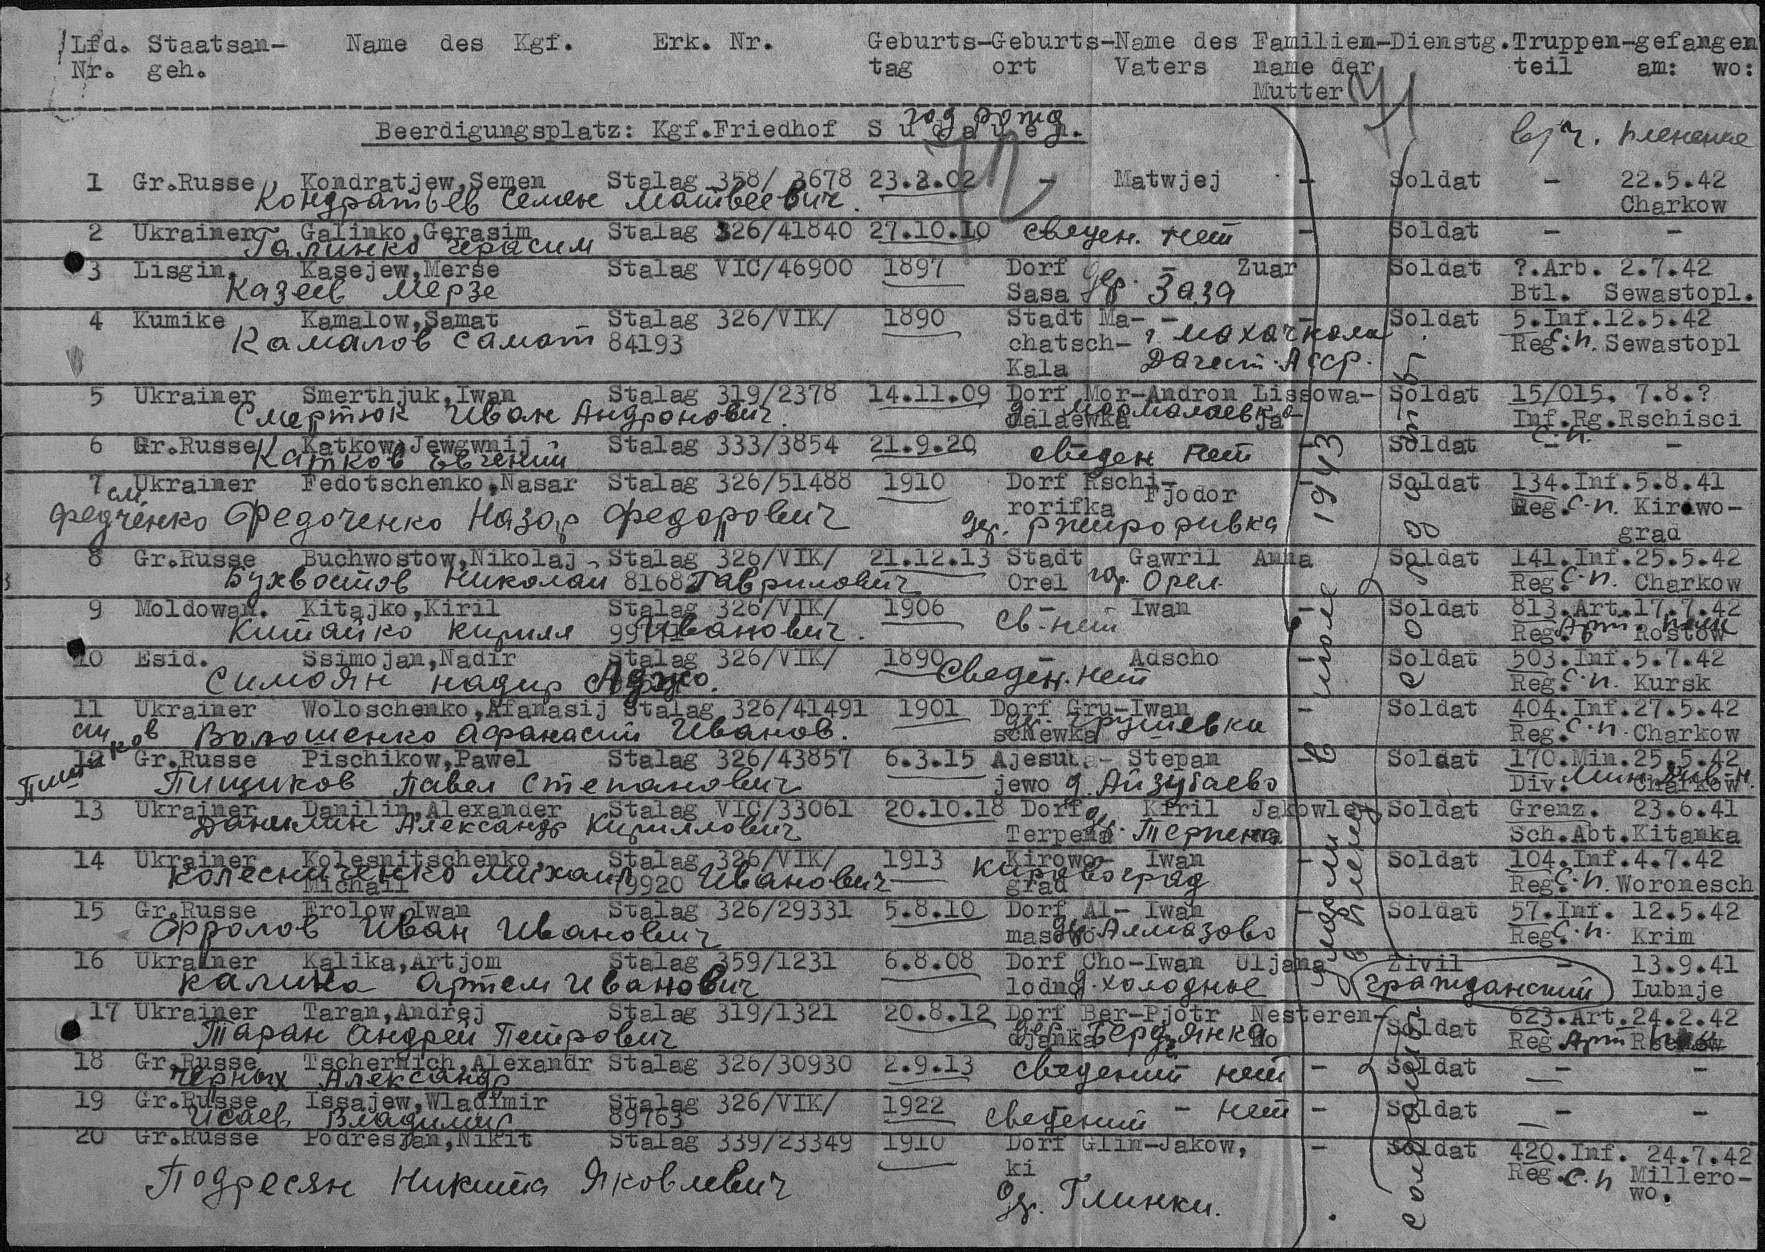 Lfd. Staatsan- Name des Kgf. Erk. Nr. Geburts- Geburts- Name des Familien- Dienstg. Truppen- gefangen
Nr. geh. tag ort Vaters name der teil am: wo:
Mutter
год рожд.
Beerdigungsplatz: Kgf.Friedhof
в/ч. пленение
1 Gr.Russe Kondratjew,Semen Stalag 358/ 3678 23.2.02 - Matwjej - Soldat - 22.5.42
Кондратьев Семен Матвеевич. Charkow
2 Ukrainer Galinko,Gerasim Stalag 326/41840 27.10.10 сведен. нет - Soldat - -
Галинко Герасим
3 Lisgin. Kasejew,Merse Stalag VIC/46900 1897 Dorf - Zuar Soldat ?.Arb. 2.7.42
Казеев Мерзе Sasa дер. Заза Btl. Sewastopl.
4 Kumike Kamalow,Samat Stalag 326/VIK/ 1890 Stadt Ma- - - Soldat 5.Inf.12.5.42
Камалов Самат 84193 chatsch- г. Махачкала Reg. с.п. Sewastopl
Kala Дагест. Асср.
5 Ukrainer Smerthjuk,Iwan Stalag 319/2378 14.11.09 Dorf Mor- Andron Lissowa- Soldat 15/015. 7.8.?
Смертюк Иван Андронович. dalaewka ja Inf.Rg.Rschisci
6 Gr.Russe Katkow,Jewgwnij Stalag 333/3854 21.9.20 сведен нет - Soldat - -
Катков Евгений с.п.
7 Ukrainer Fedotschenko,Nasar Stalag 326/51488 1910 Dorf Rschi- Fjodor - Soldat 134.Inf.5.8.41
см. Федченко Федоченко Назар Федорович rorifka дер. Ржироривка Reg. с.п. Kirowo-
grad
8 Gr.Russe Buchwostow,Nikolaj Stalag 326/VIK/ 21.12.13 Stadt Gawril Anna Soldat 141.Inf.25.5.42
Бухвостов Николай Гаврилович Orel гор. Орел Reg. с.п. Charkow
9 Moldowan. Kitajko,Kiril Stalag 326/VIK/ 1906 - Iwan - Soldat 813.Art.17.7.42
Китайко Кирилл Иванович. св. нет Reg. Rostow
10 Esid. Ssimojan,Nadir Stalag 326/VIK/ 1890 - Adscho - Soldat 503.Inf.5.7.42
Симоян Надир Аджо. Сведен. нет Reg. с.п. Kursk
11 Ukrainer Woloschenko,Afanasij Stalag 326/41491 1901 Dorf Gru- Iwan - Soldat 404.Inf.27.5.42
Волошенко Афанасий Иванов. schewka Грушевка Reg. с.п. Charkow
12 Gr.Russe Pischikow,Pawel Stalag 326/43857 6.3.15 Ajesuba- Stepan - Soldat 170.Min.25.5.42
Пищиков Павел Степанович jewo д. Айзубаево Div. Charkow
13 Ukrainer Danilin,Alexander Stalag VIC/33061 20.10.18 Dorf Kiril Jakowlew Soldat Grenz. 23.6.41
Данилин Александр Кириллович Terpena Терпена Sch.Abt.Kitanka
14 Ukrainer Kolesnitschenko, Stalag 326/VIK/ 1913 Kirowo- Iwan - Soldat 104.Inf.4.7.42
Колесниченко Михаил Иванович Michail grad Кировоград Reg. с.п. Woronesch
15 Gr.Russe Frolow,Iwan Stalag 326/29331 5.8.10 Dorf Al- Iwan - Soldat 57.Inf. 12.5.42
Фролов Иван Иванович masowo Алмазово Reg. с.п. Krim
16 Ukrainer Kalika,Artjom Stalag 359/1231 6.8.08 Dorf Cho- Iwan Uljana Zivil - 13.9.41
Калика Артем Иванович lodno д. Холодное гражданский Lubnje
17 Ukrainer Taran,Andrej Stalag 319/1321 20.8.12 Dorf Ber- Pjotr Nesteren- Soldat 623.Art.24.2.42
Таран Андрей Петрович djanka дер. Бердянка ko Reg
18 Gr.Russe Tschernich,Alexandr Stalag 326/30930 2.9.13 сведений нет - Soldat - -
Черных Александр
19 Gr.Russe Issajew,Wladimir Stalag 326/VIK/ 1922 - - - Soldat - -
Исаев Владимир 89763 сведений нет
20 Gr.Russe Podresjan,Nikit Stalag 339/23349 1910 Dorf Glin- Jakow, - Soldat 420.Inf. 24.7.42
Подресян Никита Яковлевич ki дер. Глинки. Reg. с.п Millero-
wo.
умерли в плену в июле 1943
солдаты